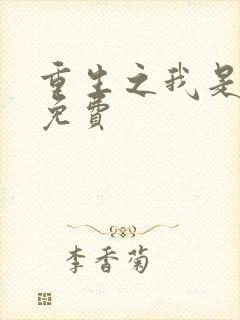 重生之我是
免費
李香菊